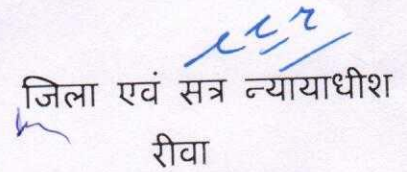 जिला एवं सत्र न्यायाधीश
रीवा